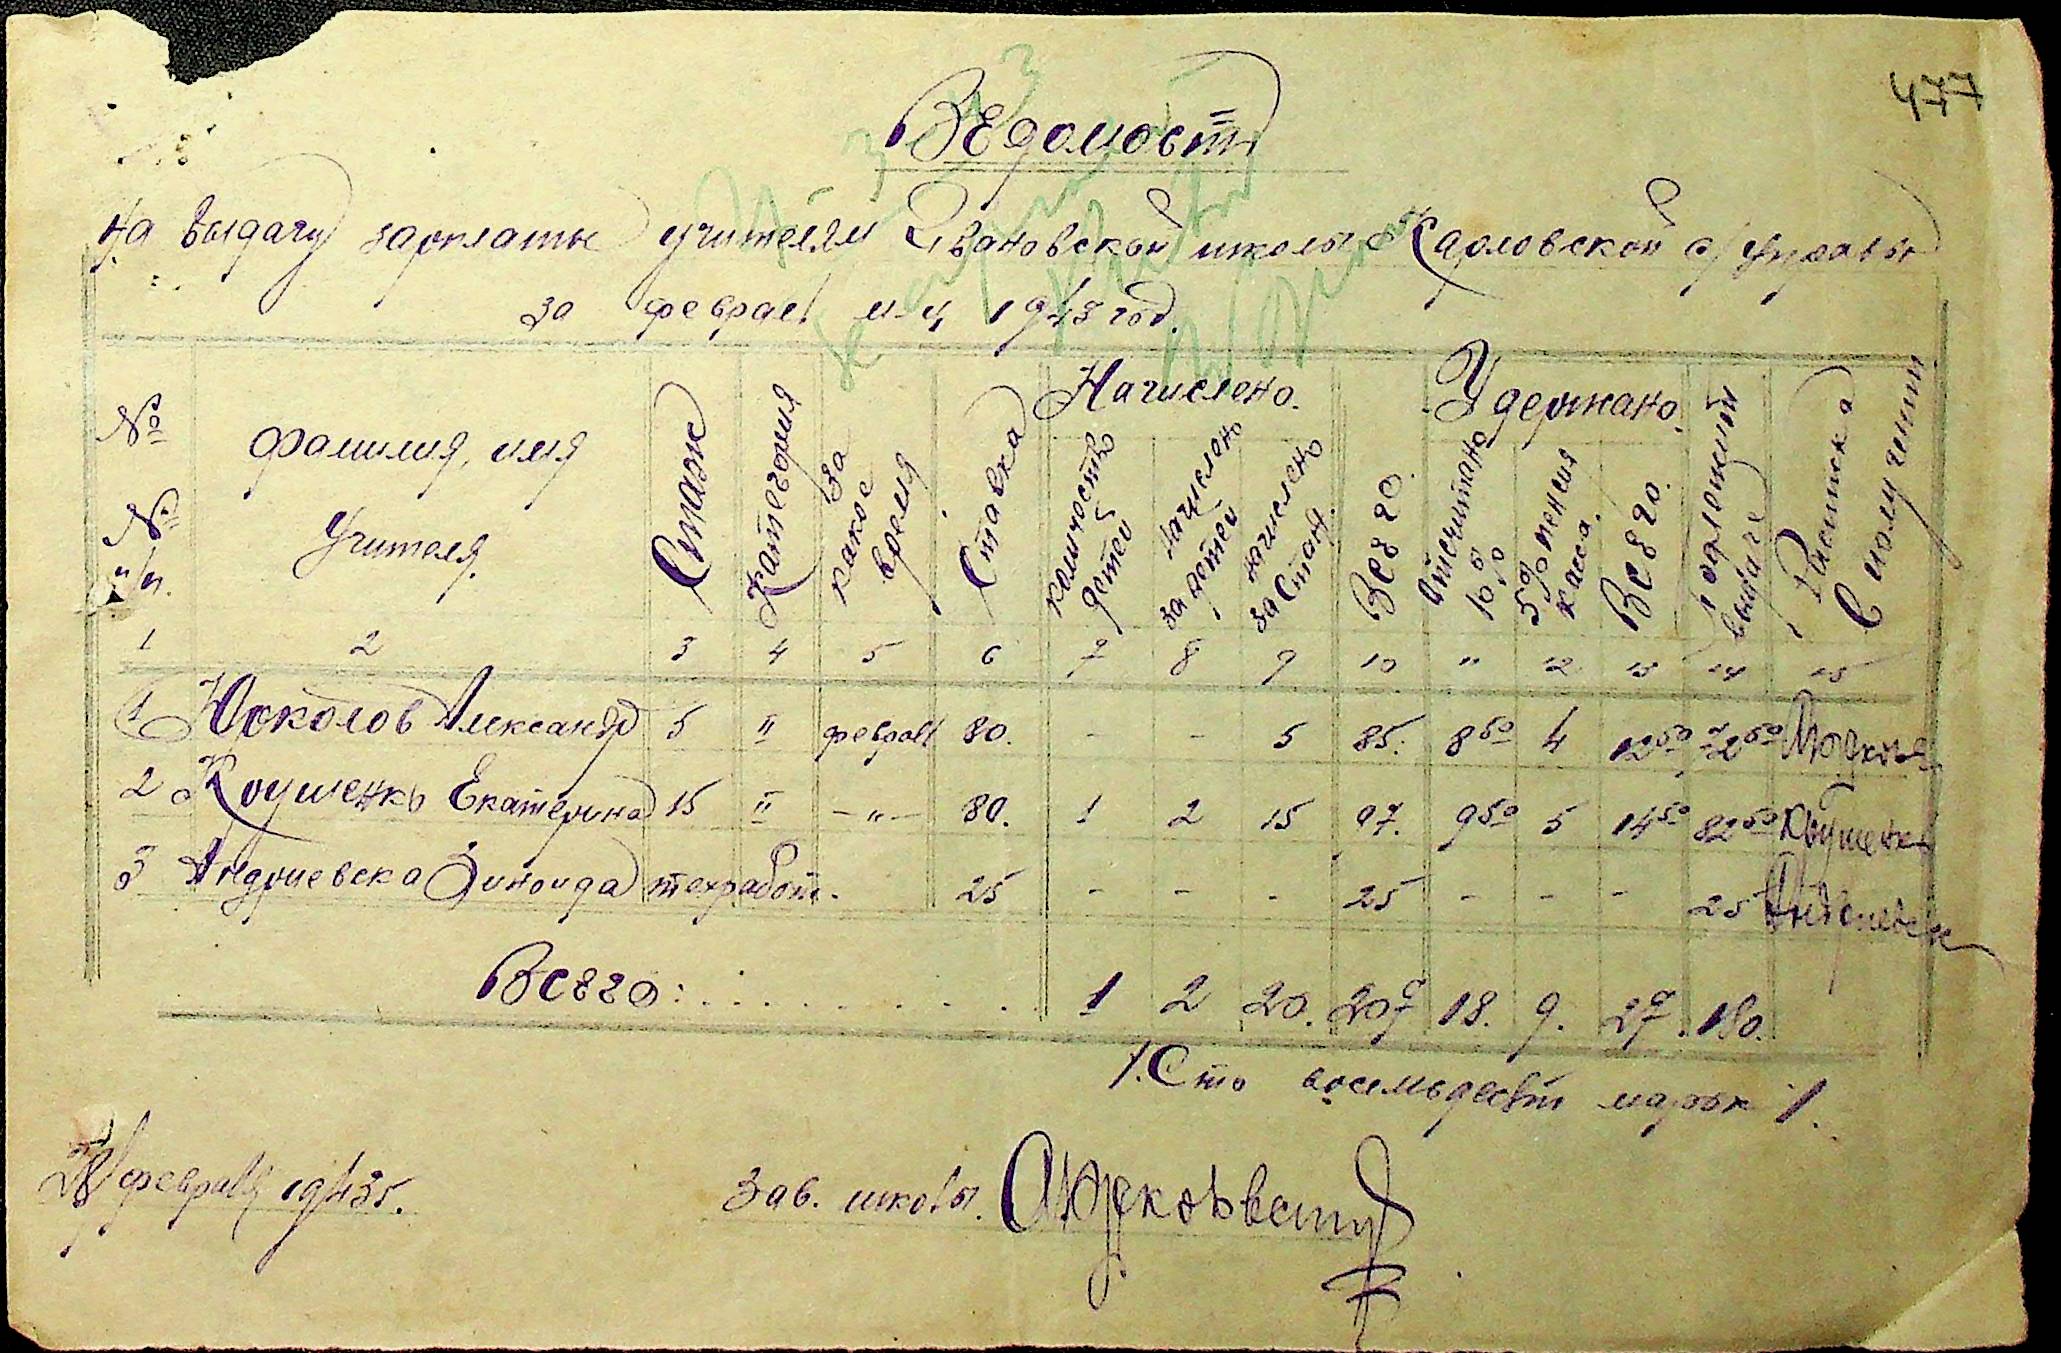 477
Ведомость
на выдачу зарплаты учителям Ивановской школы Карловской с/управы
за феврал м-ц 1943 год.
№ № п/п. фамилия, имя учителя. Стаж Категория За какое время Ставка Начислено. количество детей начислено за детей начислено за Стаж. Всего. Удержано. 10% 5% пенсия касса. Всего. Подлежит выдаче Расписка в получении
1 2 3 4 5 6 7 8 9 10 " 12 13 14 15
1 Александр 5 II феврал 80. - - 5 85. 8 50 4 12 50 72 50
2 Екатерина 15 II -"- 80. 1 2 15 97. 9 50 5 14 50 82 50
3 Андриевска Зиноида техработ. 25 - - - 25 - - - 25 Андриевск
Всего: . . . . . . . . . . 1 2 20. 207 18. 9. 27. 180.
/. Сто восемьдесят марок /.
28/февраля 1943г.
Зав. школы.